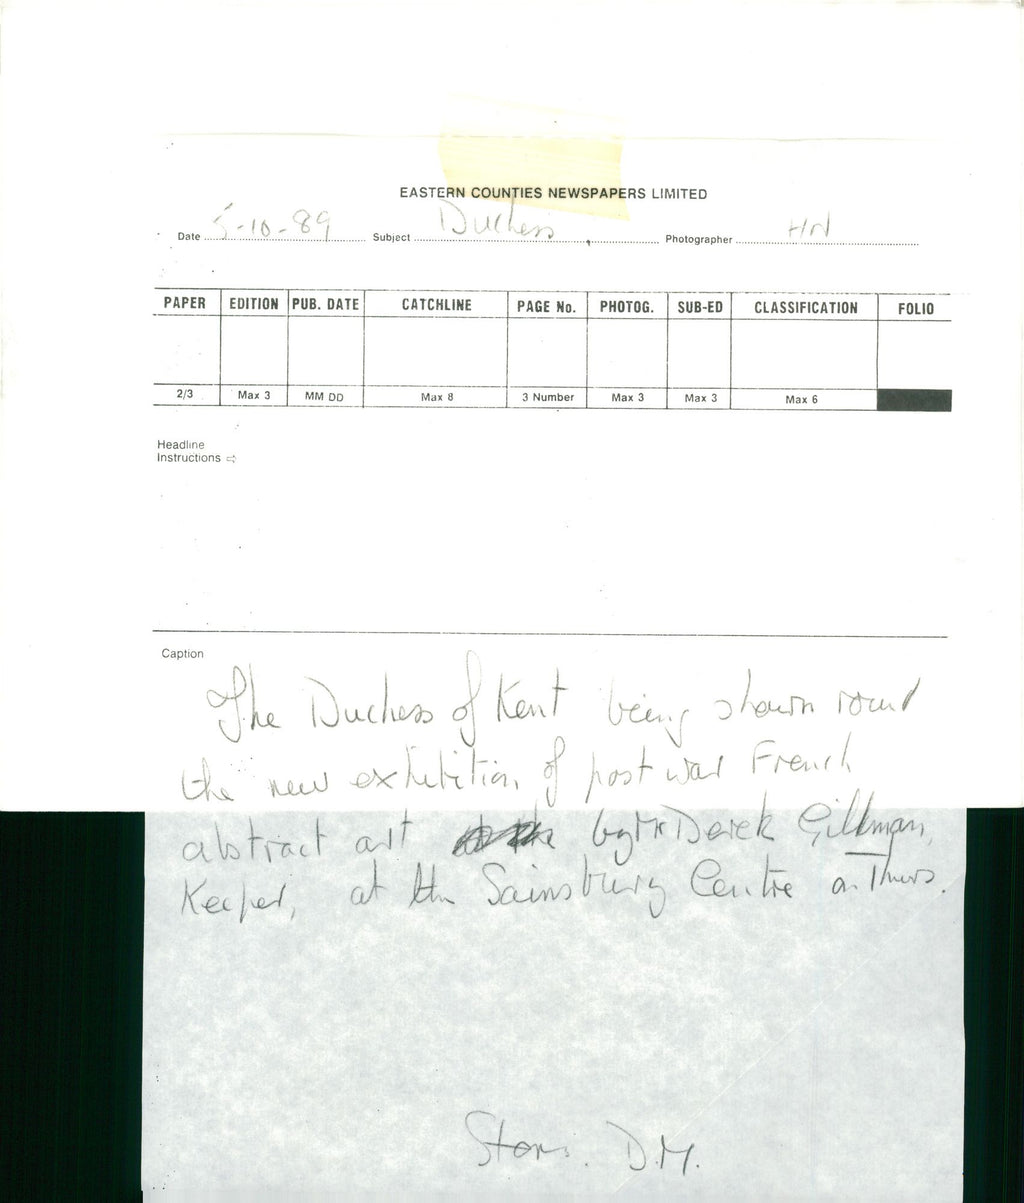 EASTERN COUNTIES NEWSPAPERS LIMITED
Date 5-10-89 Subject Duchess Photographer HN
PAPER EDITION PUB. DATE CATCHLINE PAGE No. PHOTOG. SUB-ED CLASSIFICATION FOLIO
2/3 Max 3 MM DD Max 8 3 Number Max 3 Max 3 Max 6
Headline
Instructions ⇨
Caption
The Duchess of Kent being shown round
the new exhibition of post war French
abstract art by Mr Derek Gillman,
Keeper, at the Sainsbury Centre on Thurs.
D.M.